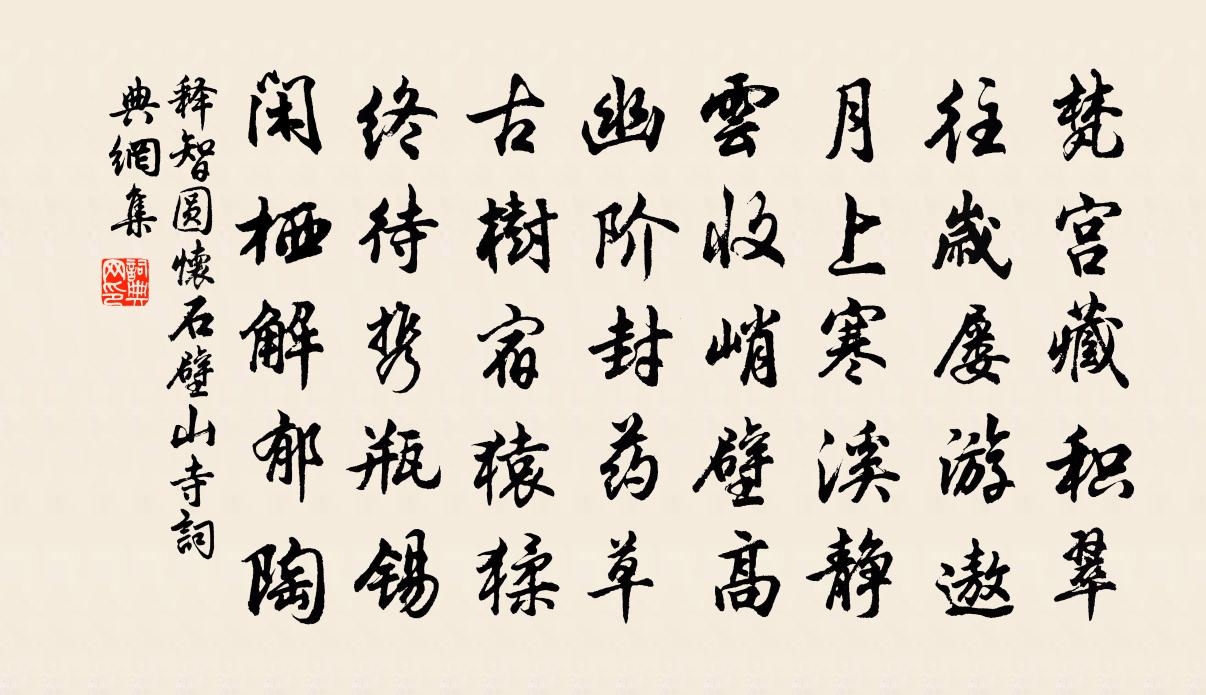 梵宫藏积翠
往歳屡游遨
月上寒溪静
雲收峭壁高
幽阶封药草
古樹宿猿猱
终待携瓶锡
闲栖解郁陶
释智圆懷石壁山寺詞
典網集
詞典
网印